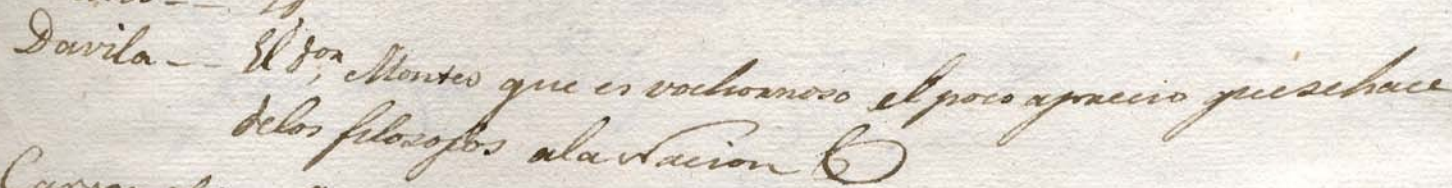 Davila - - El Sor. Monteo que es vochornoso el poco aprecio que se hace
delos filosofos ala Nacion